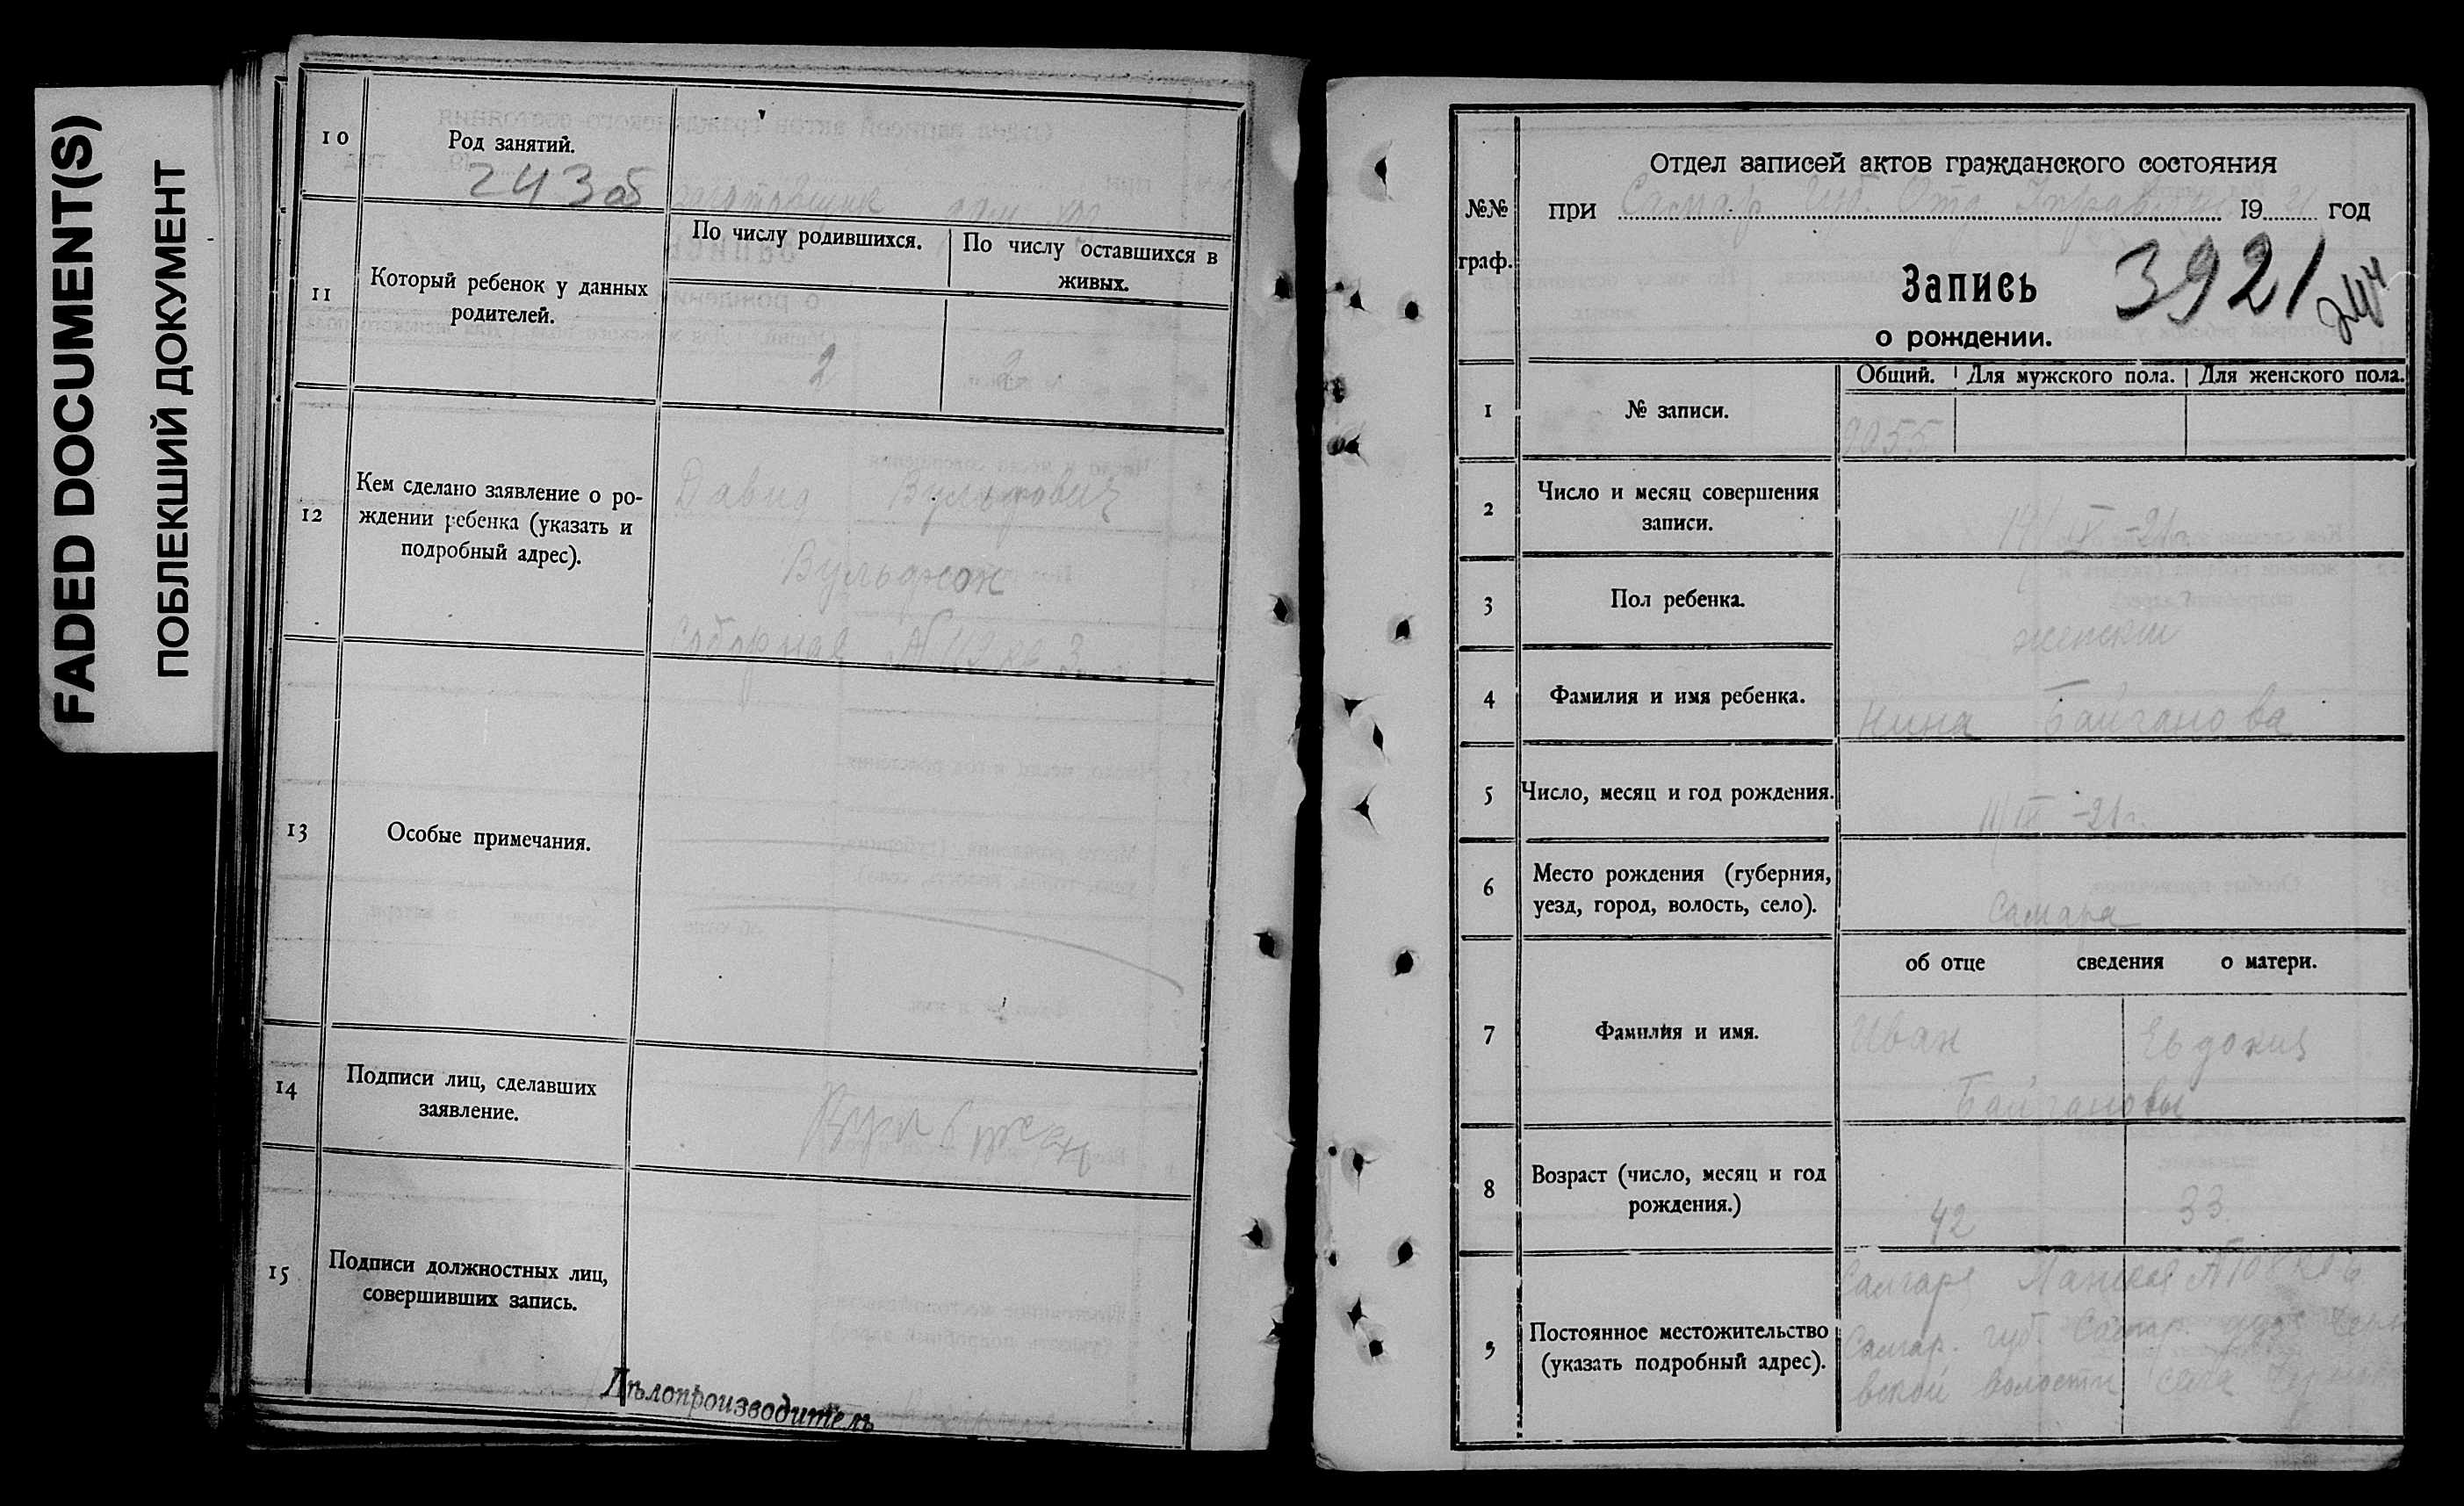 FADED DOCUMENT(S)
ПОБЛЕКШИЙ ДОКУМЕНТ
10
Род занятий.
243 об
11
Который ребенок у данных
родителей.
По числу родившихся.
По числу оставшихся в
живых.
2
2
12
Кем сделано заявление о ро-
ждении ребенка (указать и
подробный адрес).
Давид Вульфович
Вульфсон
Соборная
13
Особые примечания.
14
Подписи лиц, сделавших
заявление.
15
Подписи должностных лиц,
совершивших запись.
Дѣлопроизводитель
№№
граф.
Отдел записей актов гражданского состояния
при Самар. Губ. Отд. Управлен. 1921 год
Запись
о рождении.
3921
244
1
№ записи.
Общий.
Для мужского пола.
Для женского пола.
2055
2
Число и месяц совершения
записи.
3
Пол ребенка.
женский
4
Фамилия и имя ребенка.
Нина Байганова
5
Число, месяц и год рождения.
6
Место рождения (губерния,
уезд, город, волость, село).
Самара
об отце сведения о матери.
7
Фамилия и имя.
Иван
Евдокия
Байгановы
8
Возраст (число, месяц и год
рождения.)
42
33
9
Постоянное местожительство
(указать подробный адрес).
Самара
Самар. губ. Самар.
вской волости села